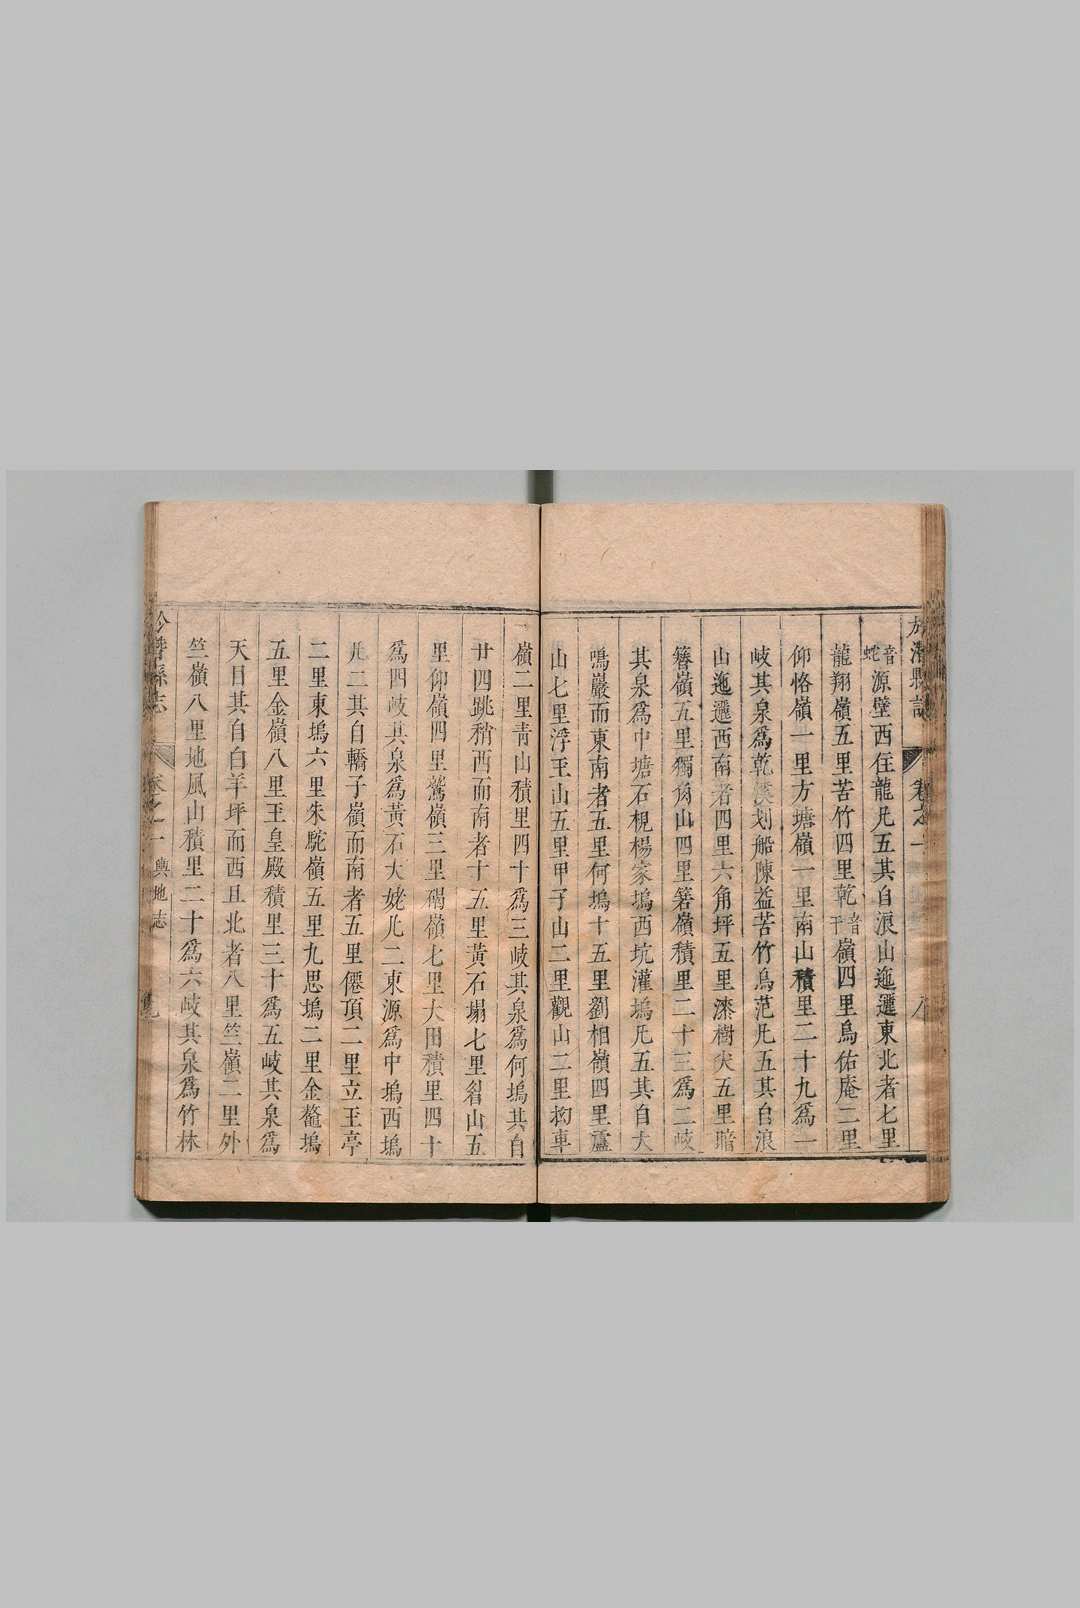 於潛縣誌
卷之一
八
蛇音源壁西住龍凡五其自浪山迤邐東北者七里
龍翔嶺五里苦竹四里乾音干嶺四里烏佑庵二里
仰恪嶺一里方塘嶺一里南山積里二十九為一
岐其泉為乾溪划船陳益苦竹烏范凡五其自浪
山迤邐西南者四里六角坪五里漆樹尖五里暗
簪嶺五里獨角山四里箬嶺積里二十三為二岐
其泉為中塘石梘楊家塢西坑灌塢凡五其自大
鳴巖而東南者五里何塢十五里劉相嶺四里蘆
山七里浮玉山五里甲子山二里觀山二里杓車
嶺二里青山積里四十為三岐其泉為何塢其自
廿四跳稍西而南者十五里黃石塌七里㟭山五
里仰嶺四里鶩嶺三里碣嶺七里大田積里四十
為四岐其泉為黃石大姥凡二東源為中塢西塢
凡二其自轎子嶺而南者五里僊頂二里立王亭
二里東塢六里朱駝嶺五里九思塢二里金鼇塢
五里金嶺八里玉皇殿積里三十為五岐其泉為
天目其自白羊坪而西且北者八里竺嶺二里外
竺嶺八里地風山積里二十為六岐其泉為竹林
於潛縣志
卷之一
輿地志
九